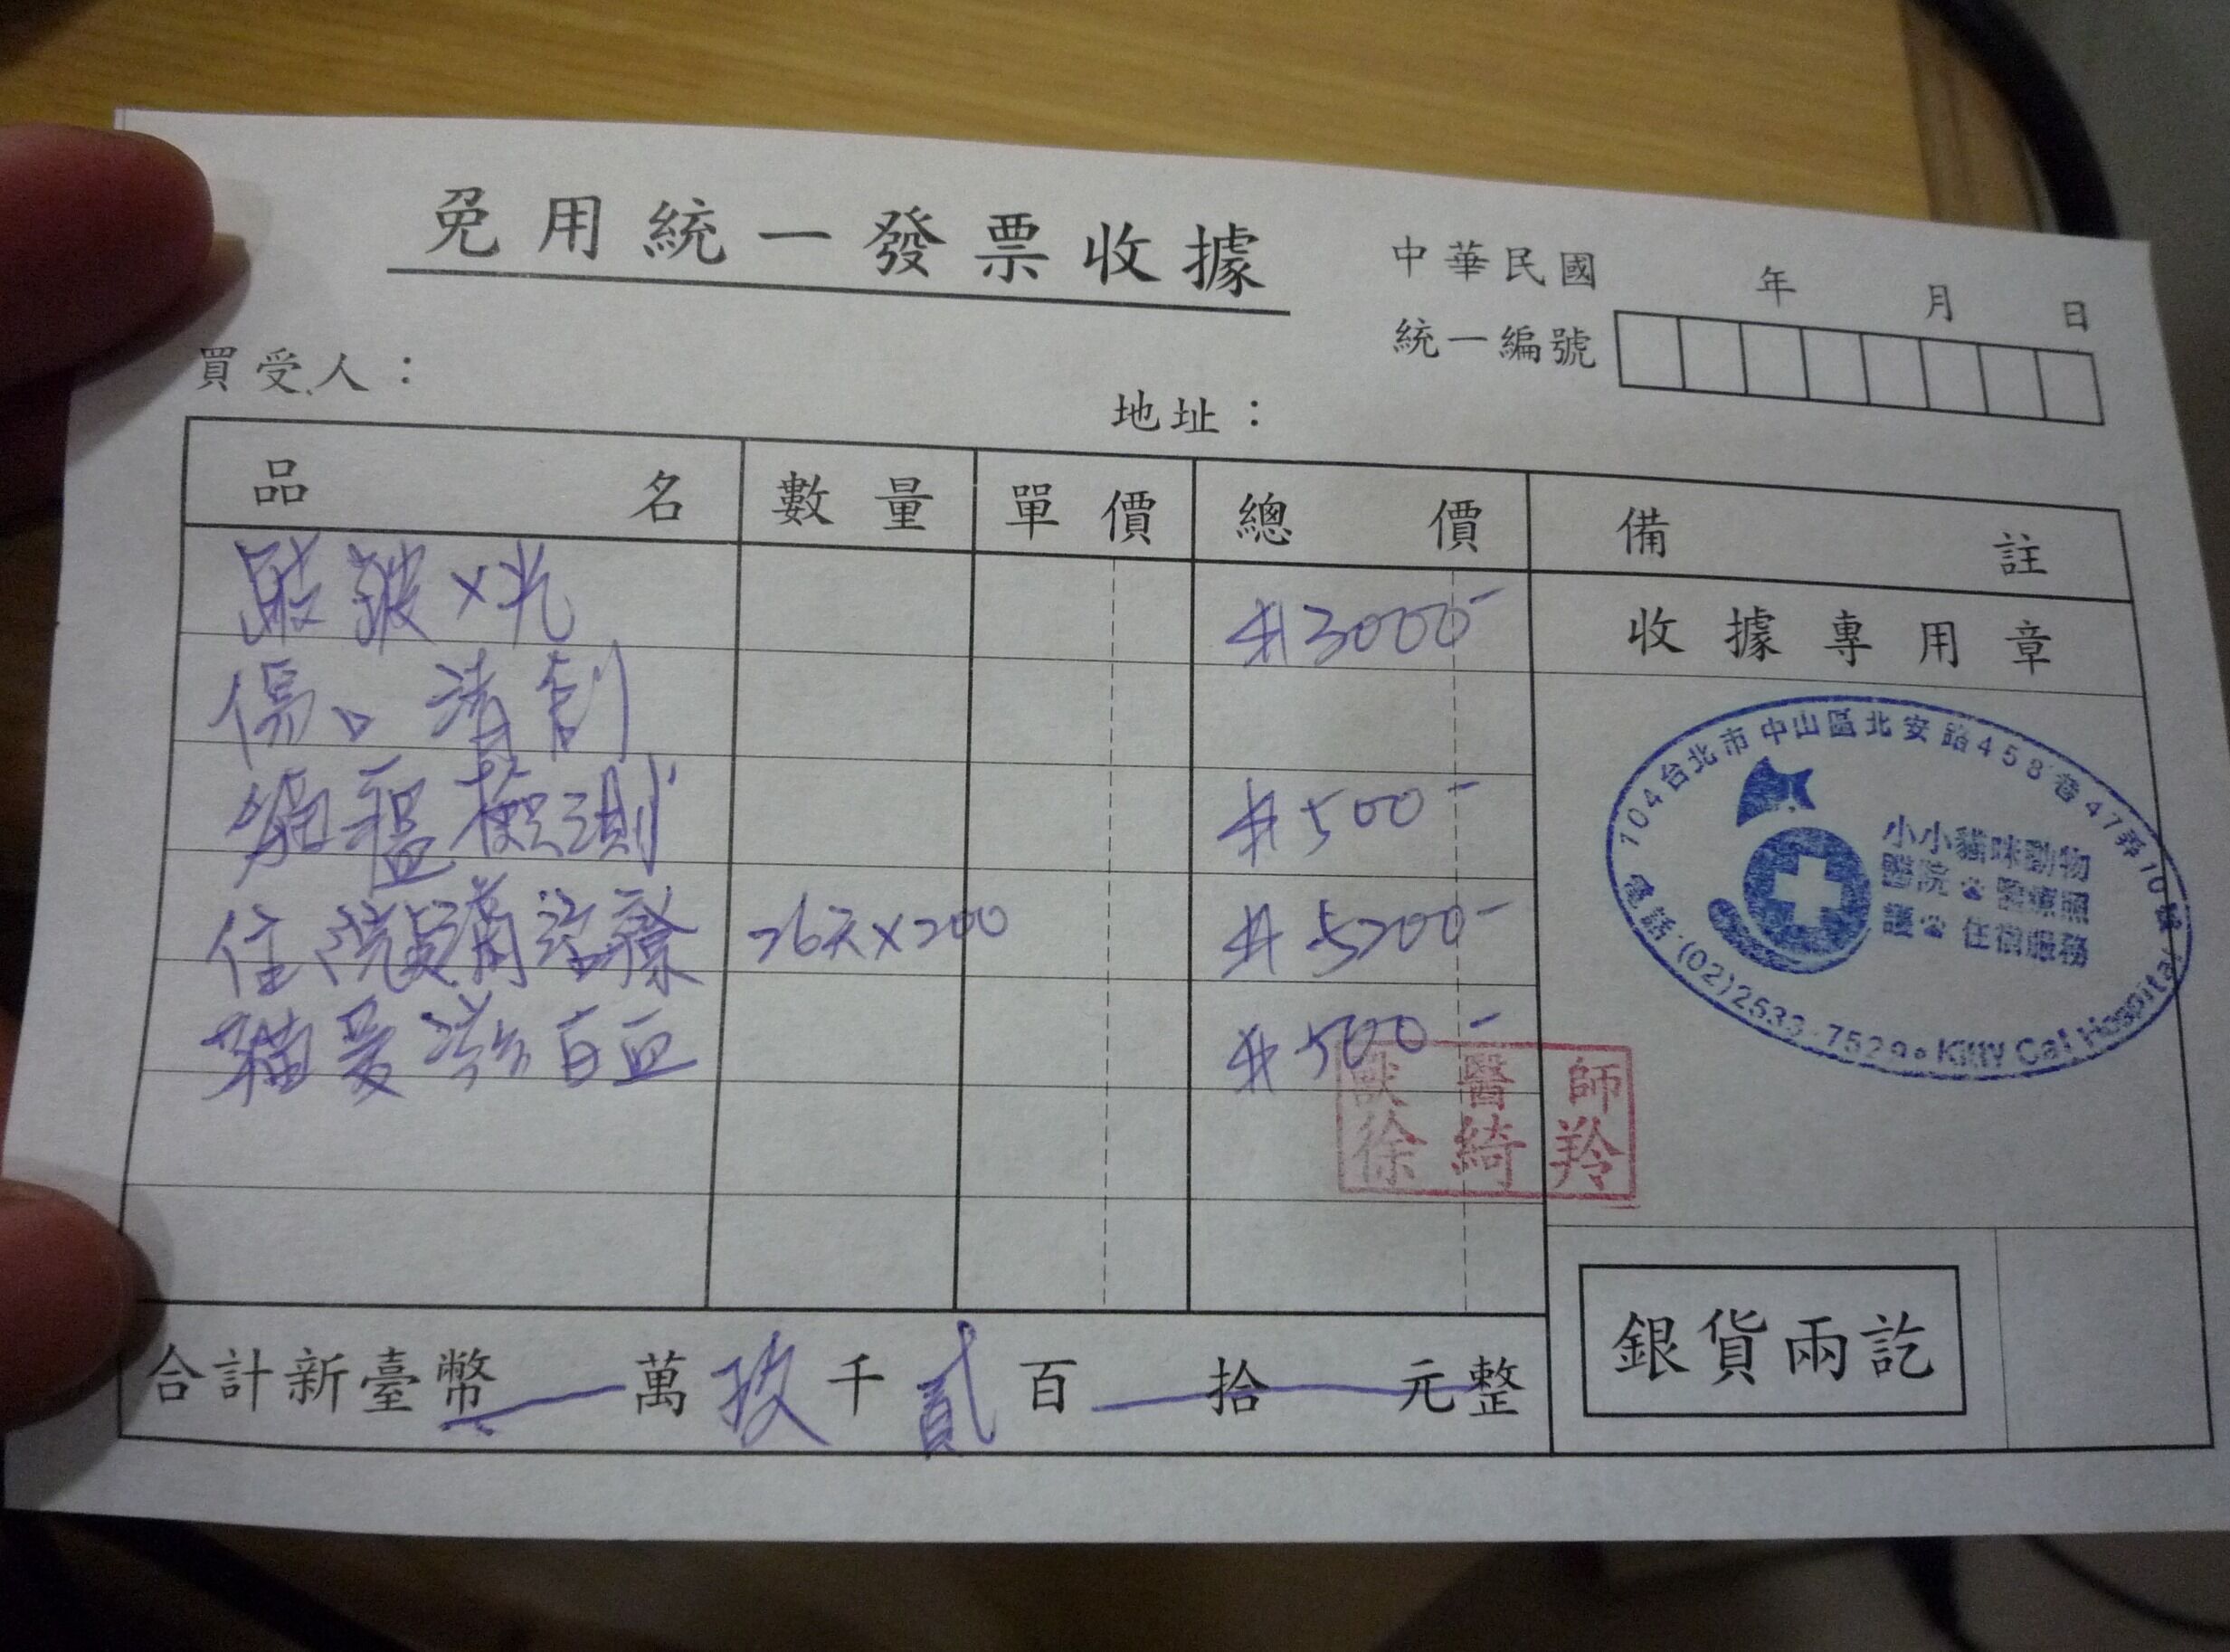 免用統一發票收據
中華民國 年 月 日
統一編號
買受人：
地址：
品名 數量 單價 總價 備註
X光 $3000-
收據專用章
傷口清創
貓瘟檢測 $500-
住院 治療 26天×200 $5200-
貓愛滋白血 $500-
104台北市中山區北安路458巷47弄10號
小小貓咪動物
醫院 醫療照
護 住宿服務
電話:(02)2533-7529 Kitty Cat Hospital
獸醫師
徐綺羚
合計新臺幣 萬 玖 千 貳 百 拾 元整
銀貨兩訖